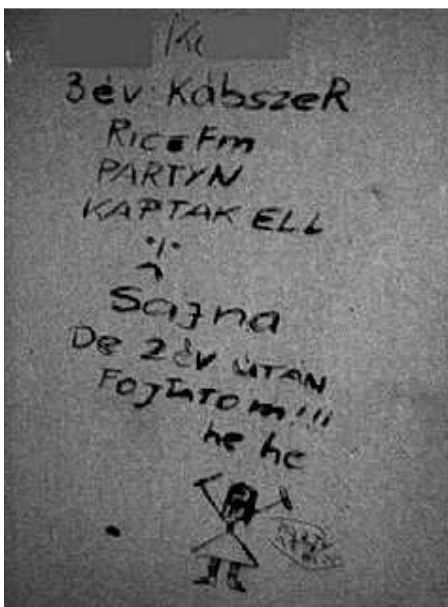 3 év KábszeR
Rice Fm
PARTYN
KAPTAK ELL
Sajna
De 2 ÉV UTÁN
FOJTATOM!!!
he he